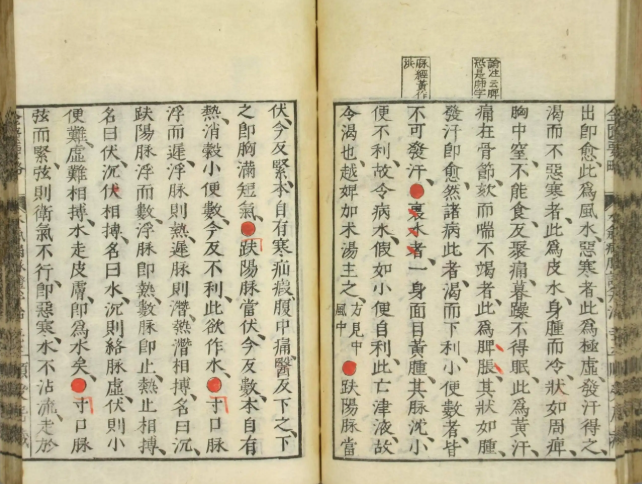 論注云脾
恐是肺字
脉經黄作
洪
出即愈此為風水惡寒者此為極虛發汗得之
渴而不惡寒者此為皮水身腫而冷狀如周痺
胸中窒不能食反聚痛暮躁不得眠此為黄汗
痛在骨節欬而喘不渴者此為脾脹其狀如腫
發汗即愈然諸病此者渴而下利小便數者皆
不可發汗裏水者一身面目黄腫其脉沈小
便不利故令病水假如小便自利此亡津液故
令渴也越婢加术湯主之方見中風中趺陽脉當
伏今反緊本自有寒疝瘕腹中痛醫反下之下
之即胸滿短氣趺陽脉當伏今反數本自有
熱消穀小便數今反不利此欲作水寸口脉
浮而遲浮脉則熱遲脉則潛熱潛相搏名曰沉
趺陽脉浮而數浮脉即熱數脉即止熱止相搏
名曰伏沉伏相搏名曰水沉則絡脉虛伏則小
便難虛難相搏水走皮膚即為水矣寸口脉
弦而緊弦則衛氣不行即惡寒水不沾流走於